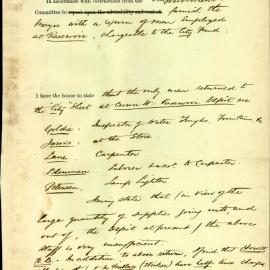 In accordance with instructions from the
Committee to report upon the advisability and cost of furnish the
Mayor with a return of men employed
at Reservoir, chargeable to the City Fund.
I have the honor to state that the only men returned to
the City Fund at Crown St. Reservoir Depôt are
Goldie Inspector of Water Troughs, Fountains &c
Jarvis at the Store
Lane Carpenter
Labourer asst to Carpenter.
Petersen Lamp Lighter
I may state that in view of the
large quantity of supplies going into and
out of the Depôt at present, the above
staff is very insufficient.
In addition to above
have half time charged